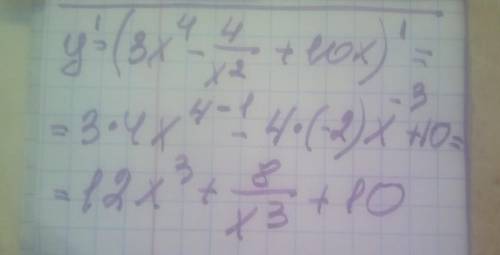 y' = (3x⁴ - 4/x² + 10x)' =
= 3·4x⁴⁻¹ - 4·(-2)x⁻³ + 10 =
= 12x³ + 8/x³ + 10